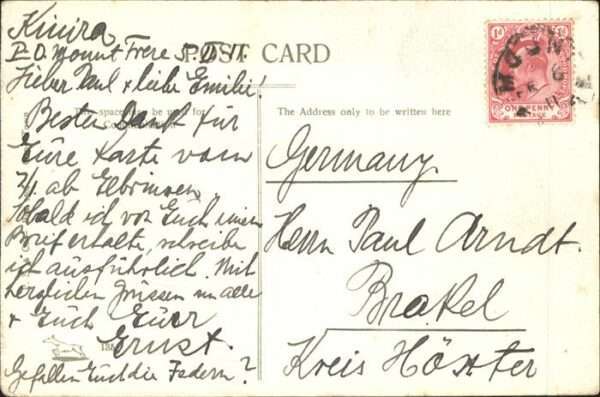 POST CARD
Kinira
P.O. Mount Frere 5. II. 11.
Lieber Paul + liebe Emilie!
This space may be used for
The Address only to be written here
Besten Dank für
Eure Karte vom
7/1 ab Elbrinxen.
Sobald ich von Euch einen
Brief erhalte, schreibe
ich ausführlich. Mit
herzlichen Grüssen an alle
+ Euch Euer
Ernst.
Gefallen Euch die Federn?
Germany.
Herrn Paul Arndt.
Brakel
Kreis Höxter
ONE PENNY
MOUN